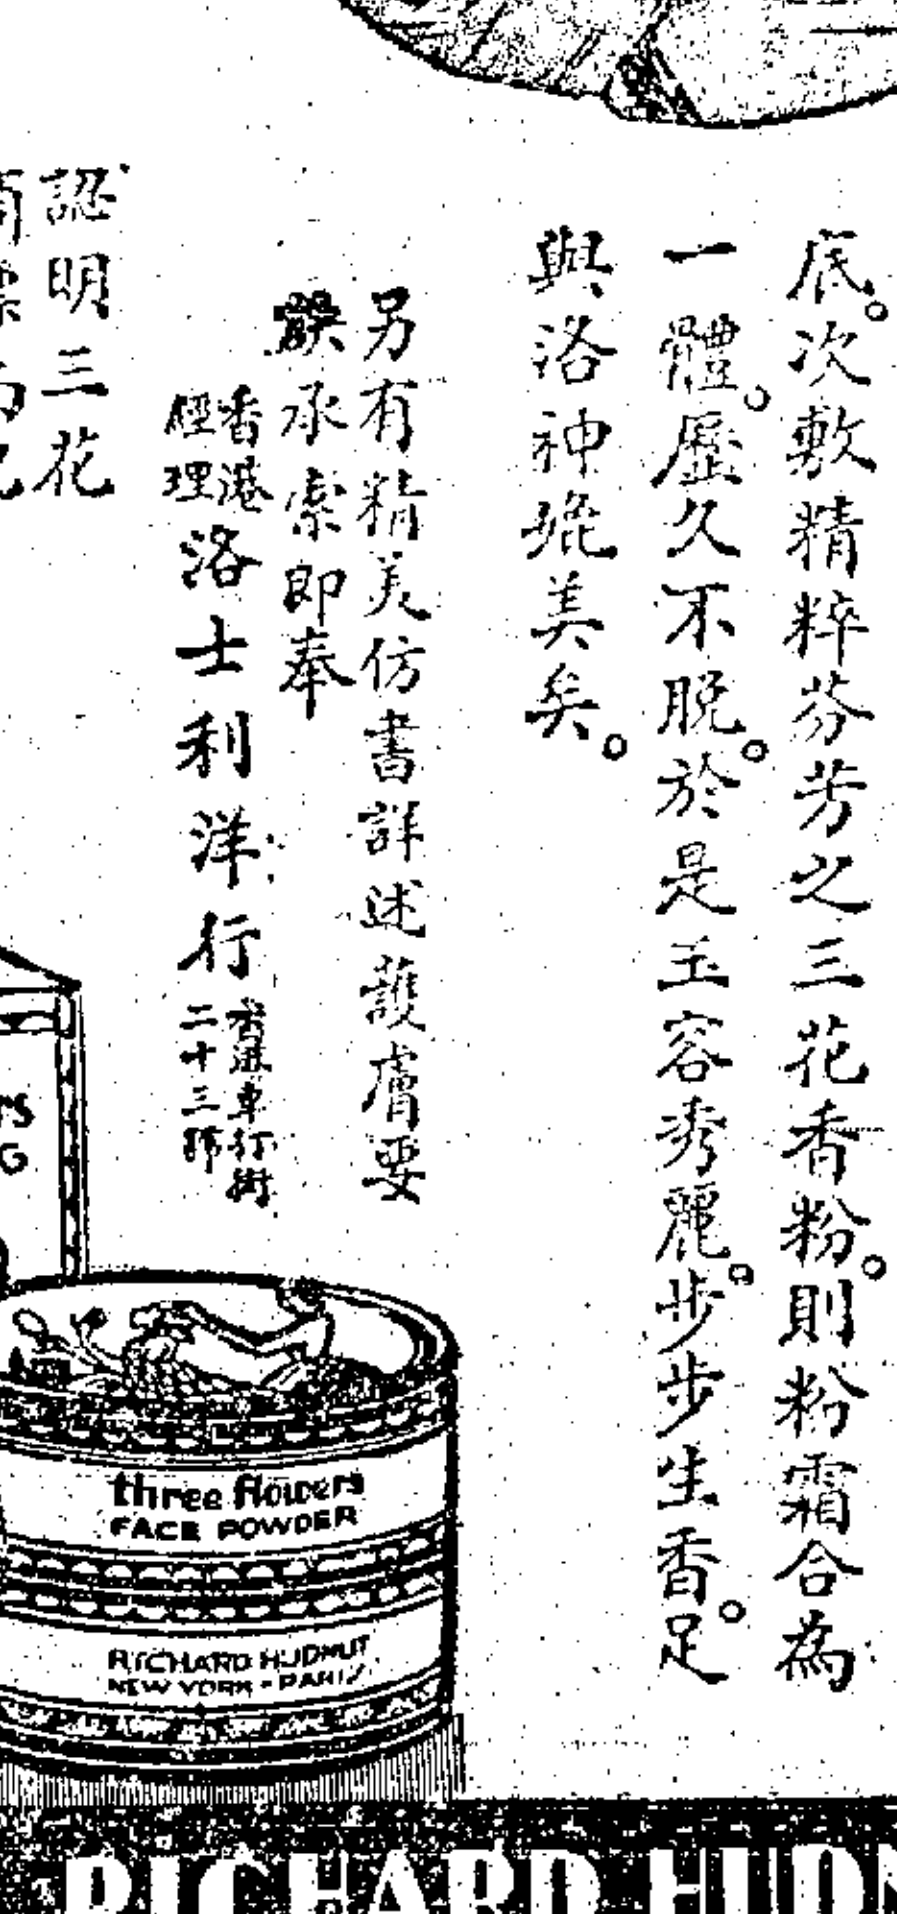 底。次敷精粹芬芳之三花香粉。則粉霜合為
一體。歷久不脫。於是玉容秀麗。步步生香。足
與洛神媲美矣。
另有精美仿書詳述護膚要
訣承索即奉
香港
經理
洛士利洋行
香港車打街
二十三號
認明三花
three flowers
FACE POWDER
RICHARD HUDNUT
NEW YORK - PARIS
RICHARD HUDN